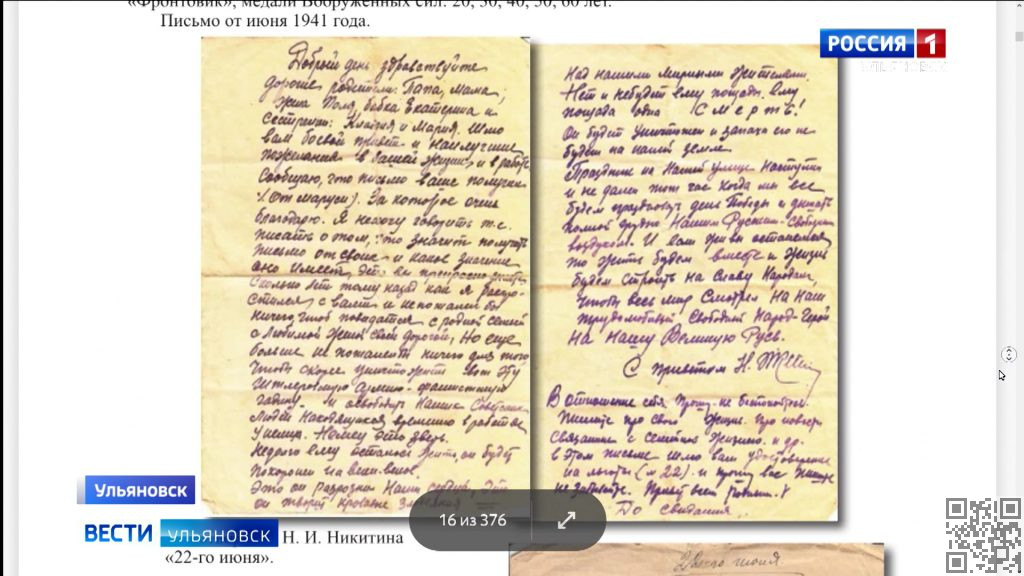 «Фронтовик», медали Вооруженных сил: 20, 30, 40, 50, 60 лет.
Письмо от июня 1941 года.
РОССИЯ 1
УЛЬЯНОВСК
Добрый день здравствуйте
дорогие родители: Папа, Мама,
Жена Поля, бабка Екатерина и
сестренки: Клавдия и Мария. Шлю
вам боевой привет и наилучшие
пожелания в вашей жизни и в работе
Сообщаю, что письмо ваше получил
(От Маруси). За которое очень
благодарю. Я не могу говорить т.е.
писать о том, что значит получить
письмо от своих и какое значение
оно имеет,
сколько лет тому назад как я
с вами и не пожалел бы
ничего чтоб повидаться с родной семьей
с любимой женой своей дорогой, Но еще
больше не пожалеть ничего для того,
чтобы скорее уничтожить свою эту
Гитлеровскую фашистскую
гадину. и освободить Наших Советских
людей находящихся временно в рабстве
у немца. Немец это зверь.
Недолго ему осталось жить, он будет
похоронен на веки-веков.
Это он разрознил Наши сердца, Это
он творит кровавые
Над нашими мирными жителями.
Нет и небудет ему пощады. ему
пощада одна Смерть!
Он будет Уничтожен и запаха его не
будет на нашей земле.
Праздник на Нашей улице наступит
и не далек тот час когда мы все
будем праздновать день Победы и дышать
полной грудью Нашим Русским Свободным
воздухом. И если живы останемся
то жить будем вместе и Жизнь
будем строить на Славу Народам,
чтобы весь мир Смотрел на наш
трудолюбивый Свободный Народ-Герой
На Нашу Великую Русь.
С приветом Н.
В отношение себя Прошу не беспокоится
Пишите про свою Жизнь. Про новости
связанные с семейной жизнью. и др.
в этом письме шлю вам удостоверение
на льготы (№22). и прошу вас
не забывайте. Привет всем родным.
До свидания.
Ульяновск
ВЕСТИ УЛЬЯНОВСК
Н. И. Никитина
«22-го июня».
16 из 376
июня